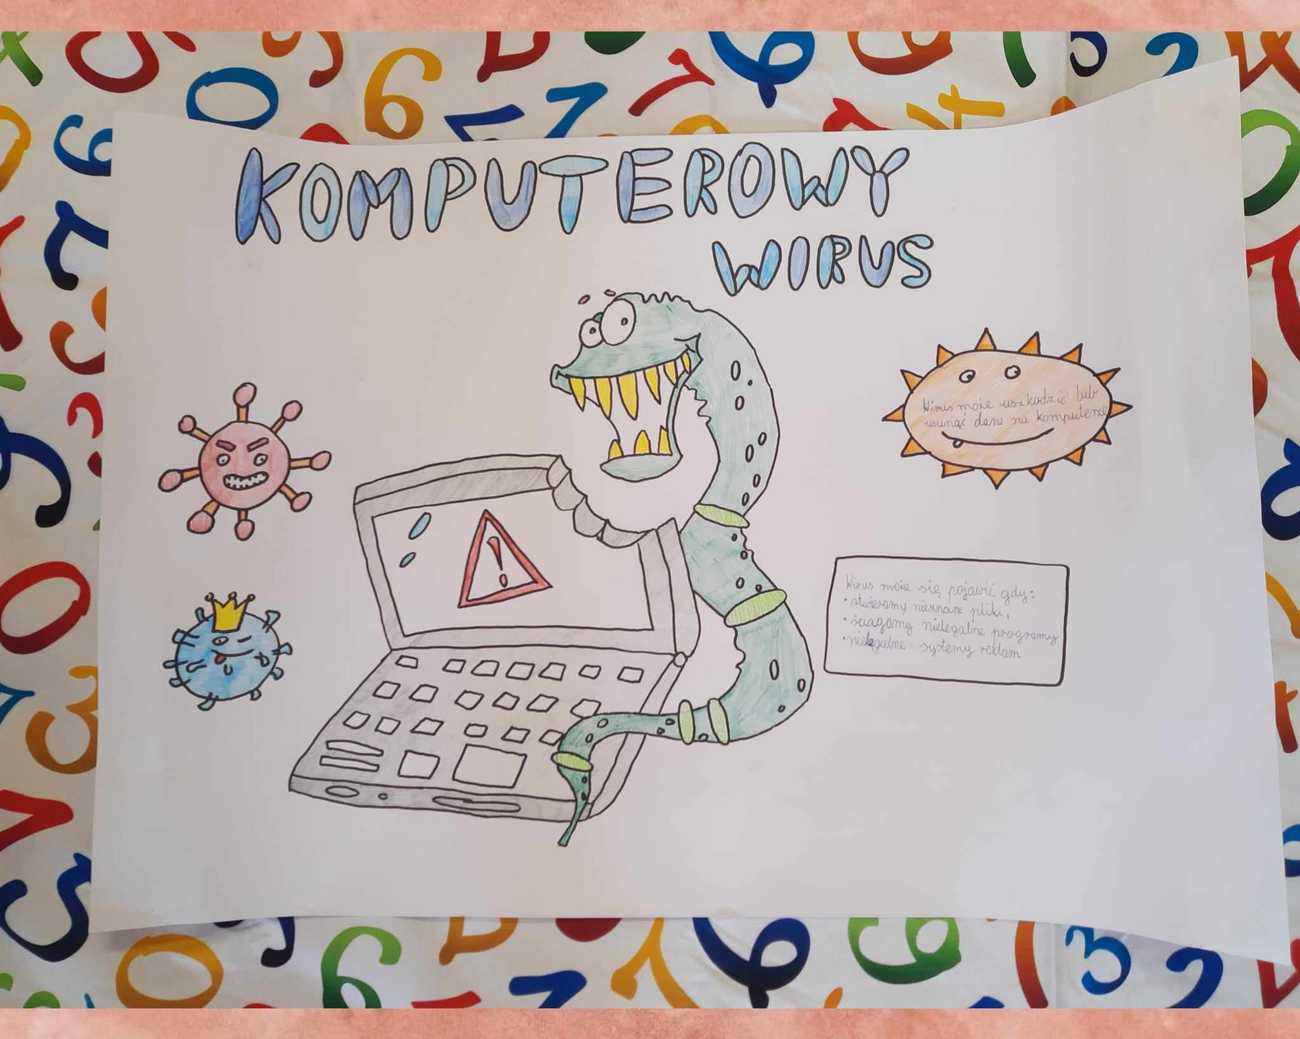 KOMPUTEROWY
WIRUS
Wirus może uszkodzić lub
usunąć dane na komputerze
!
Wirus może się pojawić gdy:
• otwieramy nieznane pliki,
• ściągamy nielegalne programy
• nielegalne systemy reklam